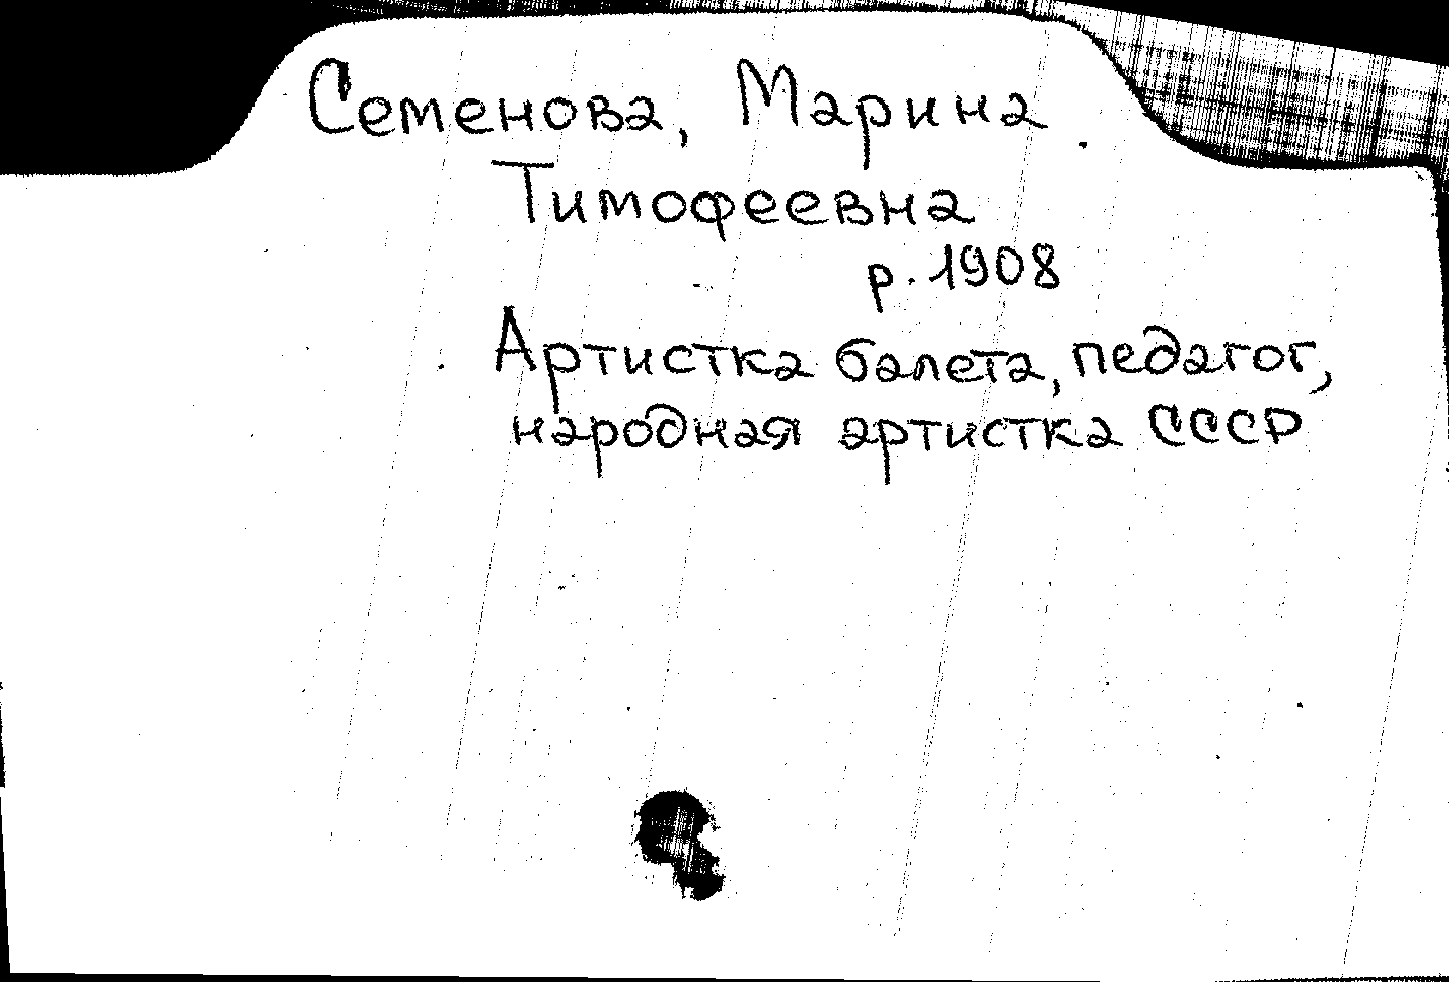 Семенова, Марина
Тимофеевна
р. 1908
Артистка балета, педагог,
народная артистка СССР